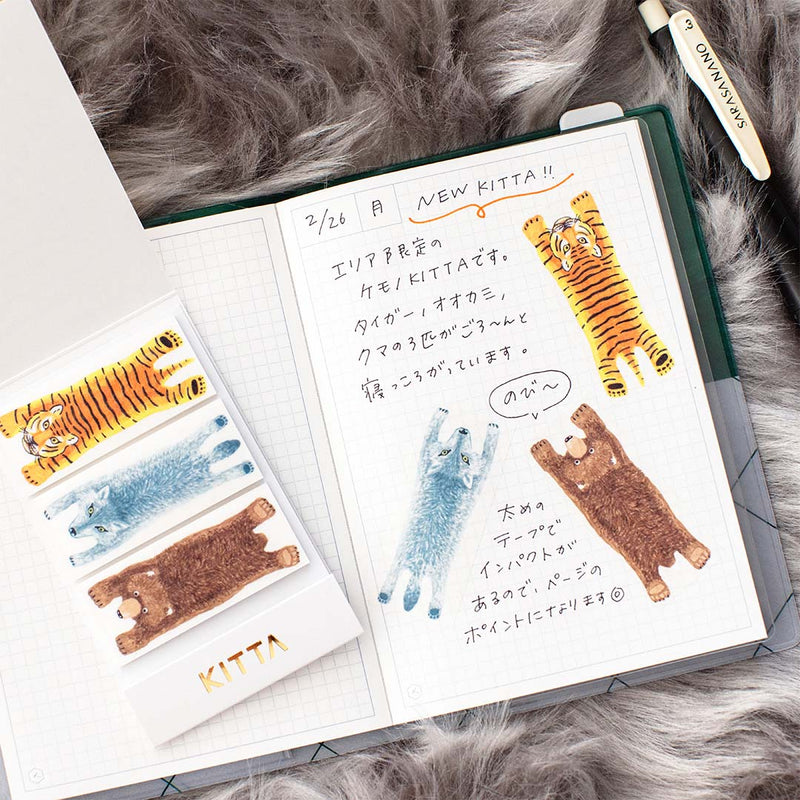 2/26 月 NEW KITTA!!
エリア限定の
ケモノKITTAです。
タイガー、オオカミ、
クマの3匹がごろ〜んと
寝っころがっています。
のび〜
太めの
テープで
インパクトが
あるので、ページの
ポイントになります◎
KITTA
SARASANANO